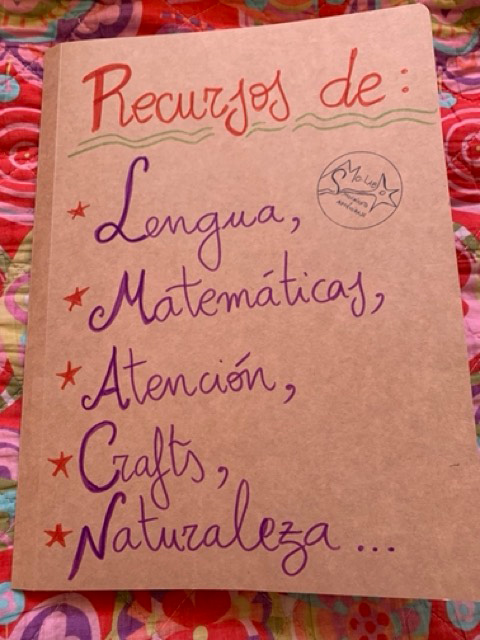 Recursos de:
* Lengua,
* Matemáticas,
* Atención,
* Crafts,
* Naturaleza...